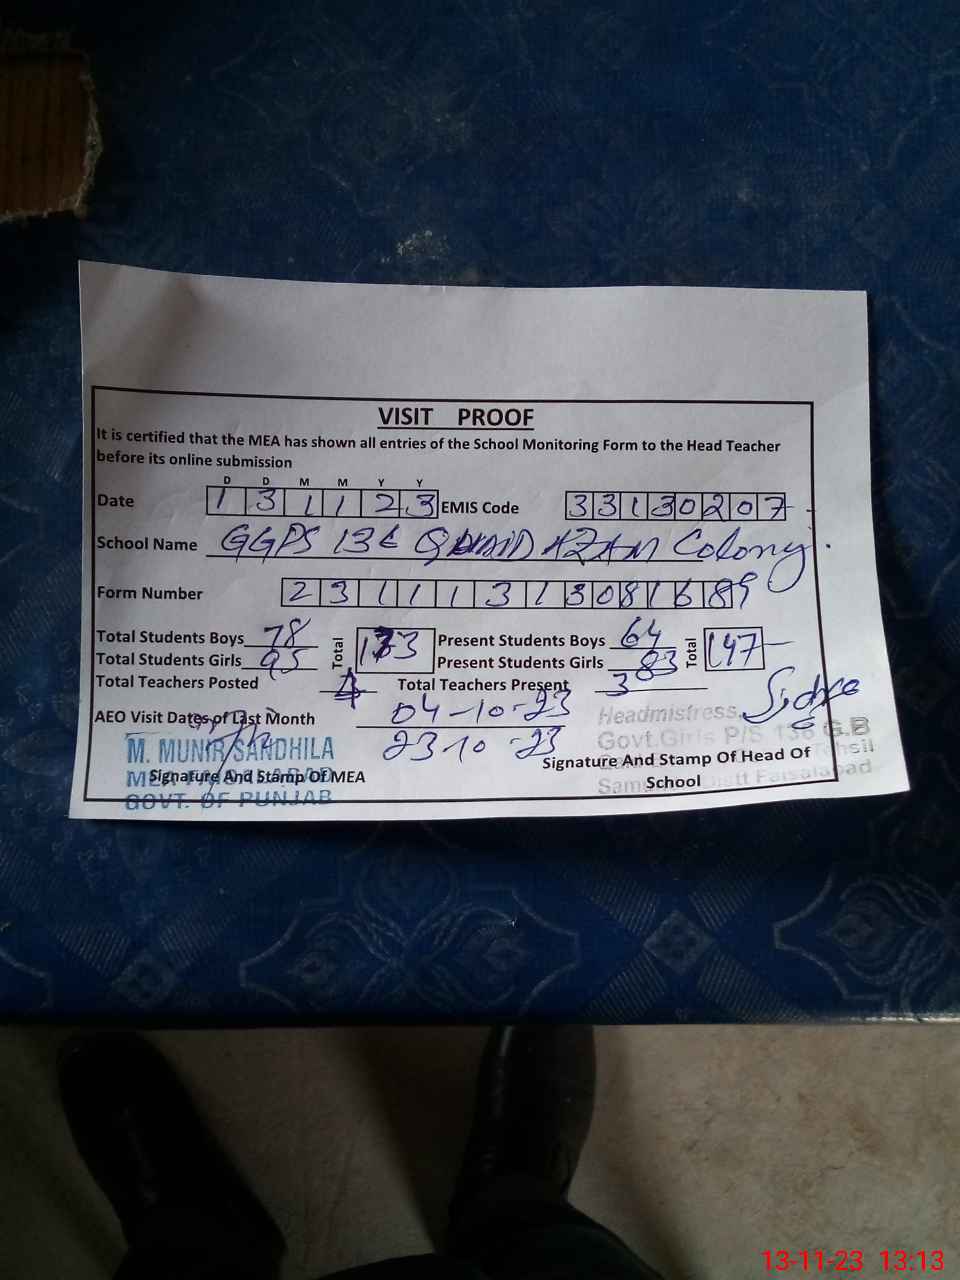 VISIT PROOF
It is certified that the MEA has shown all entries of the School Monitoring Form to the Head Teacher
before its online submission
D D M M Y Y
Date 1 3 1 1 2 3 EMIS Code 3 3 1 3 0 2 0 7
School Name GGPS 136 QUAID AZAM Colony.
Form Number 2 3 1 1 1 3 1 3 0 8 1 6 8 9
Total Students Boys 78 Total 173 Present Students Boys 64 Total 147
Total Students Girls 95 Present Students Girls 83
Total Teachers Posted 4 Total Teachers Present 3
AEO Visit Dates of Last Month 04-10-23
23-10-23
M. MUNIR SANDHILA
MEA
GOVT. OF PUNJAB
Signature And Stamp Of MEA
Headmistress,
Govt.Girls P/S 136 G.B
Tehsil
Distt Faisalabad
Signature And Stamp Of Head Of
School
13-11-23 13:13